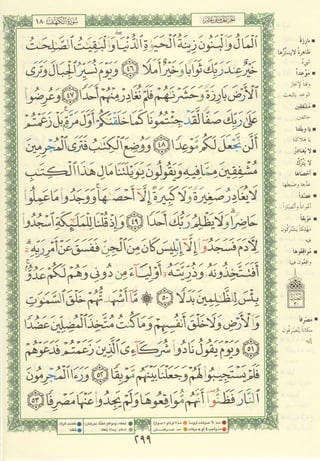 سُورَةُ الكَهْفِ ١٨
ٱلْمَالُ وَٱلْبَنُونَ زِينَةُ ٱلْحَيَوٰةِ ٱلدُّنْيَا ۖ وَٱلْبَٰقِيَٰتُ ٱلصَّٰلِحَٰتُ
خَيْرٌ عِندَ رَبِّكَ ثَوَابًا وَخَيْرٌ أَمَلًا ٤٦ وَيَوْمَ نُسَيِّرُ ٱلْجِبَالَ وَتَرَى
ٱلْأَرْضَ بَارِزَةً وَحَشَرْنَٰهُمْ فَلَمْ نُغَادِرْ مِنْهُمْ أَحَدًا ٤٧ وَعُرِضُوا۟
عَلَىٰ رَبِّكَ صَفًّا لَّقَدْ جِئْتُمُونَا كَمَا خَلَقْنَٰكُمْ أَوَّلَ مَرَّةٍۭ ۚ بَلْ زَعَمْتُمْ
أَلَّن نَّجْعَلَ لَكُم مَّوْعِدًا ٤٨ وَوُضِعَ ٱلْكِتَٰبُ فَتَرَى ٱلْمُجْرِمِينَ
مُشْفِقِينَ مِمَّا فِيهِ وَيَقُولُونَ يَٰوَيْلَتَنَا مَالِ هَٰذَا ٱلْكِتَٰبِ
لَا يُغَادِرُ صَغِيرَةً وَلَا كَبِيرَةً إِلَّآ أَحْصَىٰهَا ۚ وَوَجَدُوا۟ مَا عَمِلُوا۟
حَاضِرًا ۗ وَلَا يَظْلِمُ رَبُّكَ أَحَدًا ٤٩ وَإِذْ قُلْنَا لِلْمَلَٰٓئِكَةِ ٱسْجُدُوا۟
لِءَادَمَ فَسَجَدُوٓا۟ إِلَّآ إِبْلِيسَ كَانَ مِنَ ٱلْجِنِّ فَفَسَقَ عَنْ أَمْرِ رَبِّهِۦٓ ۗ
أَفَتَتَّخِذُونَهُۥ وَذُرِّيَّتَهُۥٓ أَوْلِيَآءَ مِن دُونِى وَهُمْ لَكُمْ عَدُوٌّۢ ۚ
بِئْسَ لِلظَّٰلِمِينَ بَدَلًا ٥٠ مَّآ أَشْهَدتُّهُمْ خَلْقَ ٱلسَّمَٰوَٰتِ
وَٱلْأَرْضِ وَلَا خَلْقَ أَنفُسِهِمْ وَمَا كُنتُ مُتَّخِذَ ٱلْمُضِلِّينَ عَضُدًا
٥١ وَيَوْمَ يَقُولُ نَادُوا۟ شُرَكَآءِىَ ٱلَّذِينَ زَعَمْتُمْ فَدَعَوْهُمْ
فَلَمْ يَسْتَجِيبُوا۟ لَهُمْ وَجَعَلْنَا بَيْنَهُم مَّوْبِقًا ٥٢ وَرَءَا ٱلْمُجْرِمُونَ
ٱلنَّارَ فَظَنُّوٓا۟ أَنَّهُم مُّوَاقِعُوهَا وَلَمْ يَجِدُوا۟ عَنْهَا مَصْرِفًا ٥٣
بارزة
موعدا
مشفقين
يا ويلتنا
لا يغادر
أحصاها
موبقا
مواقعوها
مصرفا
٢٩٩